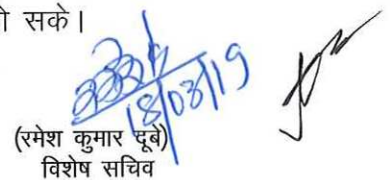 सके।
18/03/19
(रमेश कुमार दूबे)
विशेष सचिव